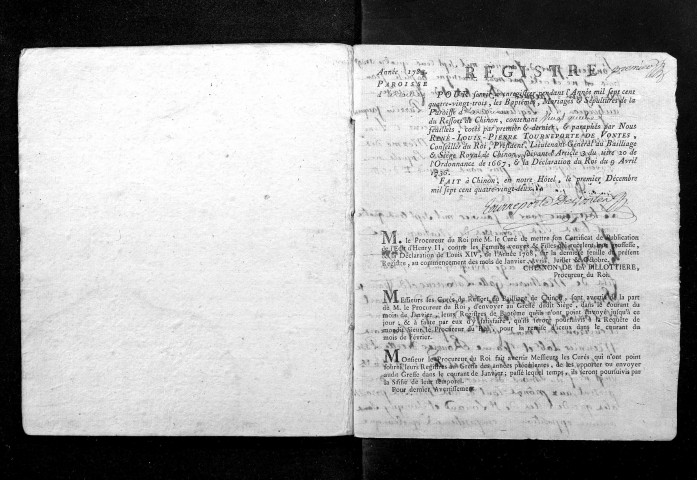 Année 1783. REGISTRE premier
PAROISSE
POUR servir à enregistrer pendant l'Année mil sept cens
quatre-vingt-trois, les Baptêmes, Mariages & Sépultures de la
Paroisse d'
du Ressort de Chinon, contenant
feuillets, cotés par premier & dernier, & paraphés par Nous
RENÉ-LOUIS-PIERRE TOURNEPORTE DE VONTES,
Conseiller du Roi, Président, Lieutenant-Général au Bailliage
& Siége Royal de Chinon, suivant l'Article 3 du titre 20 de
l'Ordonnance de 1667, & la Déclaration du Roi du 9 Avril
1736.
FAIT à Chinon, en notre Hôtel, le premier Décembre
mil sept cens quatre-vingt-deux.
Tourneporte De Vontes
M. le Procureur du Roi prie M. le Curé de mettre son Certificat de Publication
de l'Edit d'Henry II, contre les Femmes veuves & Filles qui recelent leur grossesse,
& la Déclaration de Louis XIV, de l'Année 1708, sur la derniere feuille du présent
Registre, au commencement des mois de Janvier, Avril, Juillet & Octobre.
CHESNON DE LA BILLOTTIERE,
Procureur du Roi.
Messieurs les Curés du Ressort du Bailliage de Chinon, sont avertis de la part
de M. le Procureur du Roi, d'envoyer au Greffe dudit Siége, dans le courant du
mois de Janvier, leurs Registres de Baptême qu'ils n'ont point envoyé jusqu'à ce
jour; & à faute par eux d'y satisfaire, qu'ils seront poursuivis à la Requête de
mondit Sieur le Procureur du Roi, pour la remise d'iceux dans le courant du
mois de Février.
Monsieur le Procureur du Roi fait avertir Messieurs les Curés qui n'ont point
fourni leurs Registres au Greffe des années précédentes, de les apporter ou envoyer
audit Greffe dans le courant de Janvier; passé lequel temps, ils seront poursuivis par
la Saisie de leur temporel.
Pour dernier Avertissement.